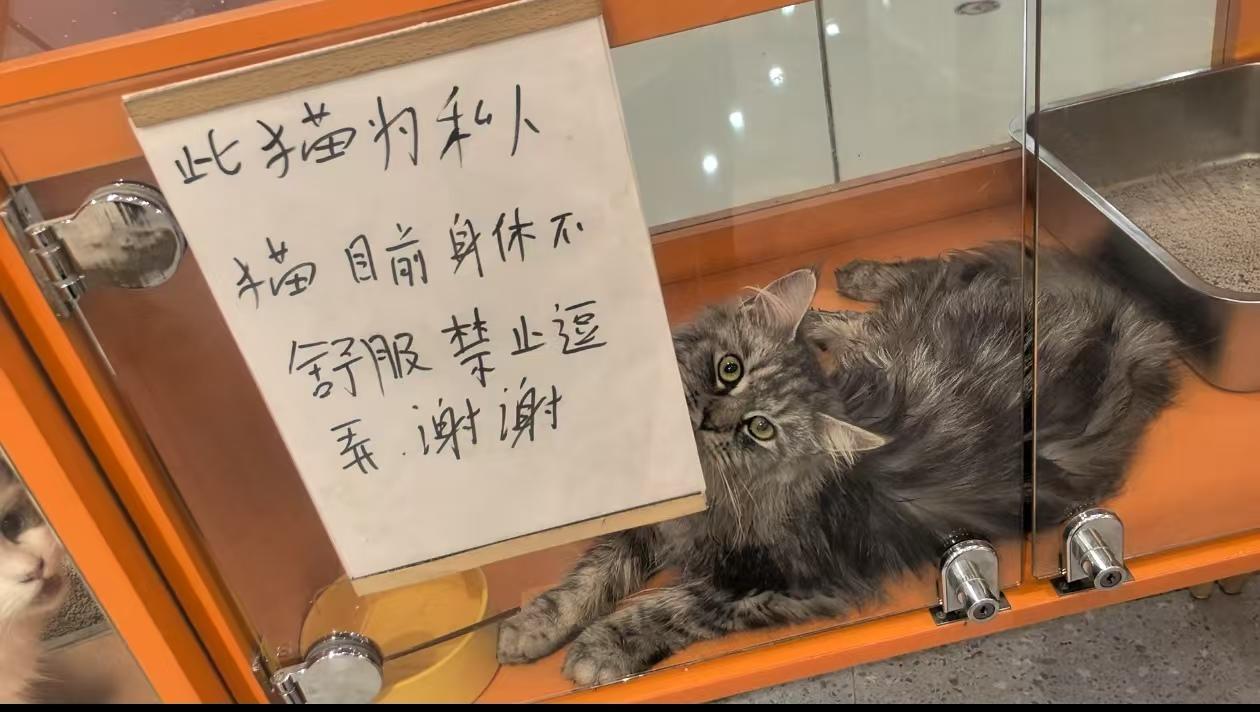 此猫为私人
猫目前身休不
舒服禁止逗
弄.谢谢